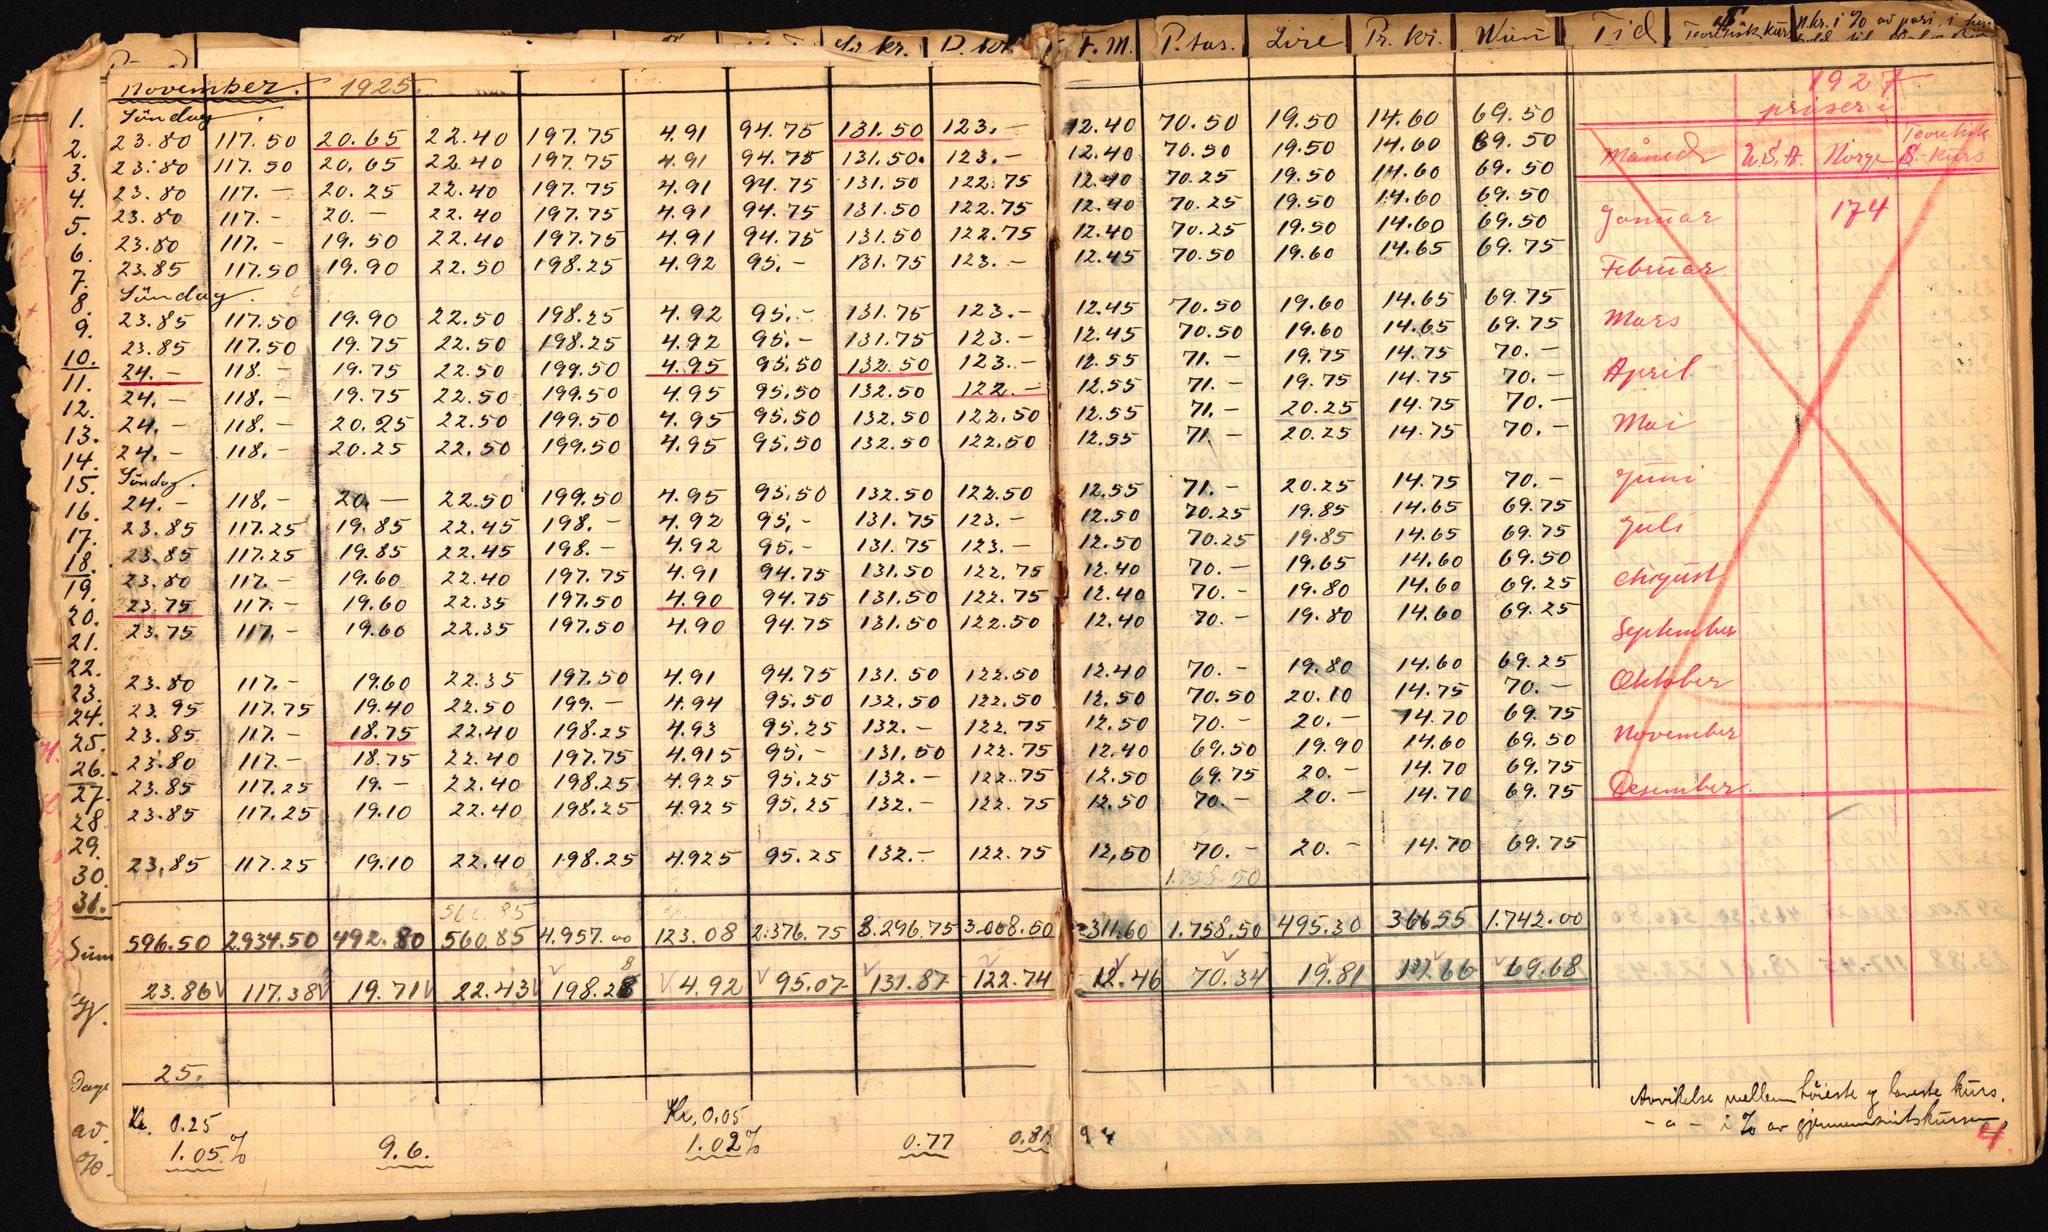 Sv. kr. D. kr. F. M. P.tas. Lire Pr. kr. Wien Tid Teoretisk kurs N.kr. i % av pari i
November. 1925.
1. Söndag.
2. 23.80 117.50 20.65 22.40 197.75 4.91 94.75 131.50 123.— 12.40 70.50 19.50 14.60 69.50
3. 23.80 117.50 20.65 22.40 197.75 4.91 94.75 131.50. 123.— 12.40 70.50 19.50 14.60 69.50
4. 23.80 117.— 20.25 22.40 197.75 4.91 94.75 131.50 122.75 12.40 70.25 19.50 14.60 69.50
5. 23.80 117.— 20.— 22.40 197.75 4.91 94.75 131.50 122.75 12.40 70.25 19.50 14.60 69.50
6. 23.80 117.— 19.50 22.40 197.75 4.91 94.75 131.50 122.75 12.40 70.25 19.50 14.60 69.50
7. 23.85 117.50 19.90 22.50 198.25 4.92 95.— 131.75 123.— 12.45 70.50 19.60 14.65 69.75
8. Söndag.
9. 23.85 117.50 19.90 22.50 198.25 4.92 95.— 131.75 123.— 12.45 70.50 19.60 14.65 69.75
10. 23.85 117.50 19.75 22.50 198.25 4.92 95.— 131.75 123.— 12.45 70.50 19.60 14.65 69.75
11. 24.— 118.— 19.75 22.50 199.50 4.95 95.50 132.50 123.— 12.55 71.— 19.75 14.75 70.—
12. 24.— 118.— 19.75 22.50 199.50 4.95 95.50 132.50 122.— 12.55 71.— 19.75 14.75 70.—
13. 24.— 118.— 20.25 22.50 199.50 4.95 95.50 132.50 122.50 12.55 71.— 20.25 14.75 70.—
14. 24.— 118.— 20.25 22.50 199.50 4.95 95.50 132.50 122.50 12.55 71.— 20.25 14.75 70.—
15. Söndag.
16. 24.— 118.— 20.— 22.50 199.50 4.95 95.50 132.50 122.50 12.55 71.— 20.25 14.75 70.—
17. 23.85 117.25 19.85 22.45 198.— 4.92 95.— 131.75 123.— 12.50 70.25 19.85 14.65 69.75
18. 23.85 117.25 19.85 22.45 198.— 4.92 95.— 131.75 123.— 12.50 70.25 19.85 14.65 69.75
19. 23.80 117.— 19.60 22.40 197.75 4.91 94.75 131.50 122.75 12.40 70.— 19.65 14.60 69.50
20. 23.75 117.— 19.60 22.35 197.50 4.90 94.75 131.50 122.75 12.40 70.— 19.80 14.60 69.25
21. 23.75 117.— 19.60 22.35 197.50 4.90 94.75 131.50 122.50 12.40 70.— 19.80 14.60 69.25
22.
23. 23.80 117.— 19.60 22.35 197.50 4.91 94.75 131.50 122.50 12.40 70.— 19.80 14.60 69.25
24. 23.95 117.75 19.40 22.50 199.— 4.94 95.50 132.50 122.50 12.50 70.50 20.10 14.75 70.—
25. 23.85 117.— 18.75 22.40 198.25 4.93 95.25 132.— 122.75 12.50 70.— 20.— 14.70 69.75
26. 23.80 117.— 18.75 22.40 197.75 4.915 95.— 131.50 122.75 12.40 69.50 19.90 14.60 69.50
27. 23.85 117.25 19.— 22.40 198.25 4.925 95.25 132.— 122.75 12.50 69.75 20.— 14.70 69.75
28. 23.85 117.25 19.10 22.40 198.25 4.925 95.25 132.— 122.75 12.50 70.— 20.— 14.70 69.75
29.
30. 23.85 117.25 19.10 22.40 198.25 4.925 95.25 132.— 122.75 12.50 70.— 20.— 14.70 69.75
31.
1.758.50
Sum 596.50 2.934.50 492.80 560.85 4.957.00 123.08 2.376.75 3.296.75 3.068.50 311.60 1.758.50 495.30 366.55 1.742.00
Gj. 23.86 117.38 19.71 22.43 198.28 4.92 95.07 131.87 122.74 12.46 70.34 19.81 14.66 69.68
Dage 25.
av. Kr. 0.25 Kr. 0.05
% 1.05% 9.6. 1.02% 0.77 0.81
1927.
priser i
Måned U.S.A. Norge Teoretisk $-kurs
Januar 174
Februar
Mars
April
Mai
Juni
Juli
August
September
Oktober
November
Desember.
Avvikelse mellem höieste og laveste kurs.
— " — i % av gjennemsnitskursen
4.